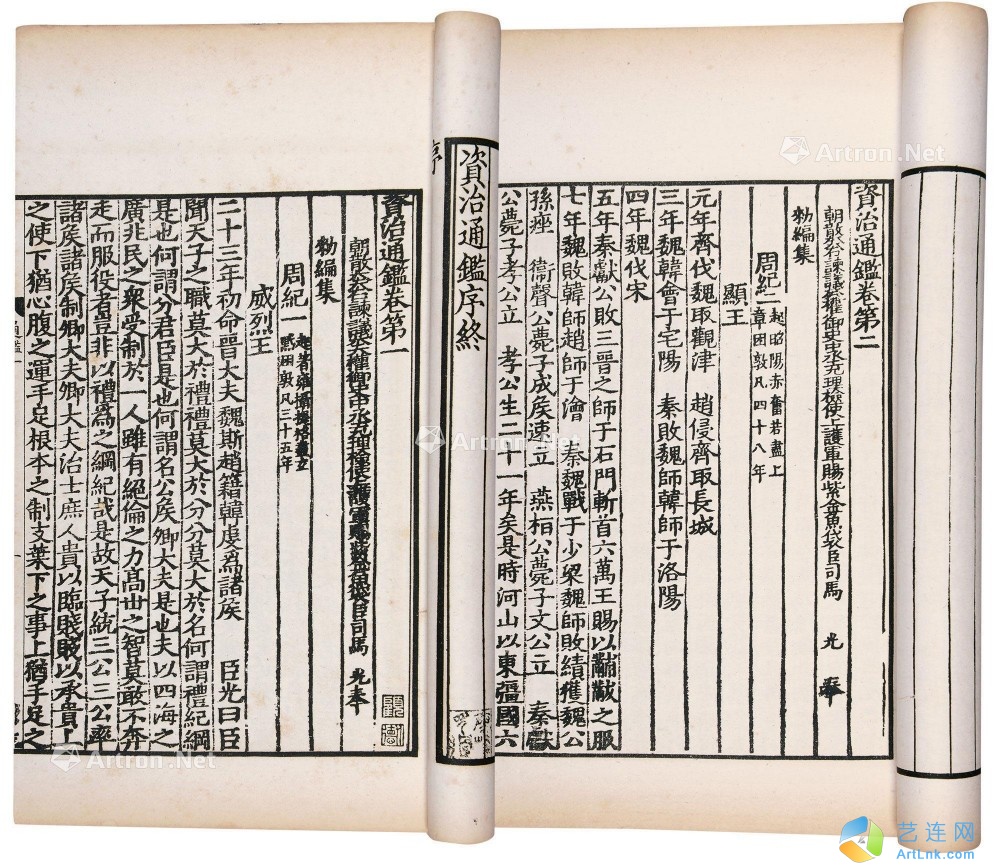 資治通鑑卷第二
朝散大夫右諫議大夫權御史中丞充理檢使上護軍賜紫金魚袋臣司馬 光 奉
勑編集
周紀二 起昭陽赤奮若盡上章困敦凡四十八年
顯王
元年齊伐魏取觀津 趙侵齊取長城
三年魏韓會于宅陽 秦敗魏師韓師于洛陽
四年魏伐宋
五年秦獻公敗三晉之師于石門斬首六萬王賜以黼黻之服
七年魏敗韓師趙師于澮 秦魏戰于少梁魏師敗績獲魏公
孫痤 衞聲公薨子成侯速立 燕桓公薨子文公立 秦獻
公薨子孝公立 孝公生二十一年矣是時河山以東彊國六
資治通鑑序終
序
資治通鑑卷第一
朝散大夫右諫議大夫權御史中丞充理檢使上護軍賜紫金魚袋臣司馬 光奉
勑編集
周紀一 起著雍攝提格盡玄黓困敦凡三十五年
威烈王
二十三年初命晉大夫魏斯趙籍韓虔爲諸侯 臣光曰臣
聞天子之職莫大於禮禮莫大於分分莫大於名何謂禮紀綱
是也何謂分君臣是也何謂名公侯卿大夫是也夫以四海之
廣兆民之衆受制於一人雖有絕倫之力高世之智莫敢不奔
走而服役者豈非以禮爲之綱紀哉是故天子統三公三公率
諸侯諸侯制卿大夫卿大夫治士庶人貴以臨賤賤以承貴上
之使下猶心腹之運手足根本之制支葉下之事上猶手足之
通鑑一
Artron.Net
Artron.Net
Artron.Net
艺连网
ArtLnk.com